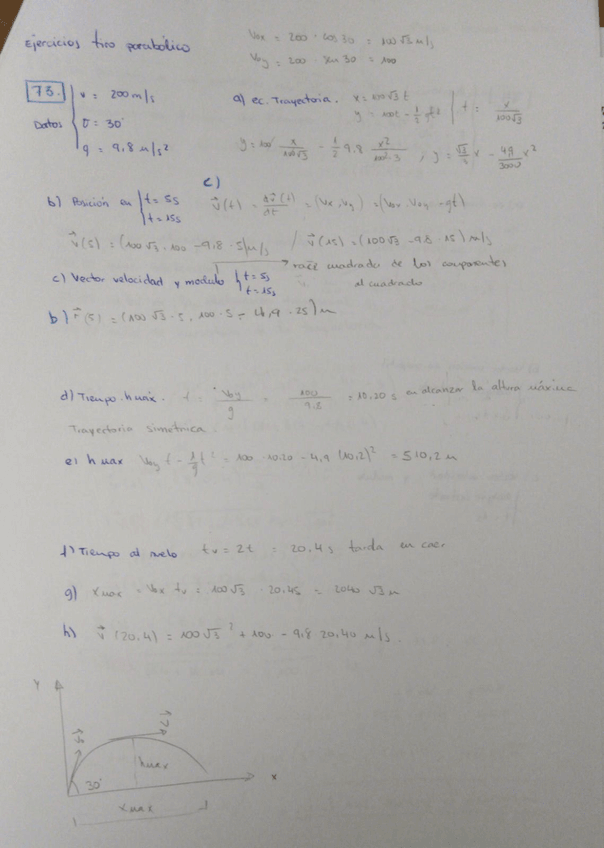 Ejercicios tiro parabólico
Vox = 200 · cos 30 = 100 √3 m/s
Voy = 200 · sen 30 = 100
73.
Datos
v = 200 m/s
θ = 30°
g = 9,8 m/s²
a) ec. Trayectoria. x = 100√3 t
y = 100t - 1/2 gt² | t = x/100√3
y = 100 x/100√3 - 1/2 9,8 x²/100²·3 , y = √3/3 x - 4,9/30000 x²
c)
b) Posición en t = 5s
t = 15s
v(t) = dr(t)/dt = (Vx, Vy) = (Vox, Voy - gt)
v(5) = (100√3 · 100 - 9,8 · 5) m/s / v(15) = (100√3 - 9,8 · 15) m/s
c) Vector velocidad y modulo t = 5s
t = 15s
raíz cuadrada de los componentes
al cuadrado
b) r(5) = (100√3 · 5, 100 · 5 - 4,9 · 25) m
d) Tiempo h máx. t = Voy/g = 100/9,8 = 10.20 s en alcanzar la altura máxima
Trayectoria simétrica.
e) h max Voy t - 1/2 t² = 100 · 10.20 - 4,9 (10,2)² = 510,2 m
f) Tiempo al vuelo tv = 2t = 20.4 s tarda en caer
g) xmax = Vox tv = 100√3 · 20,4s = 2040 √3 m
h) v(20,4) = 100√3² + 100 - 9,8 20,40 m/s.
Y
v
v
hmax
30°
x
xmax